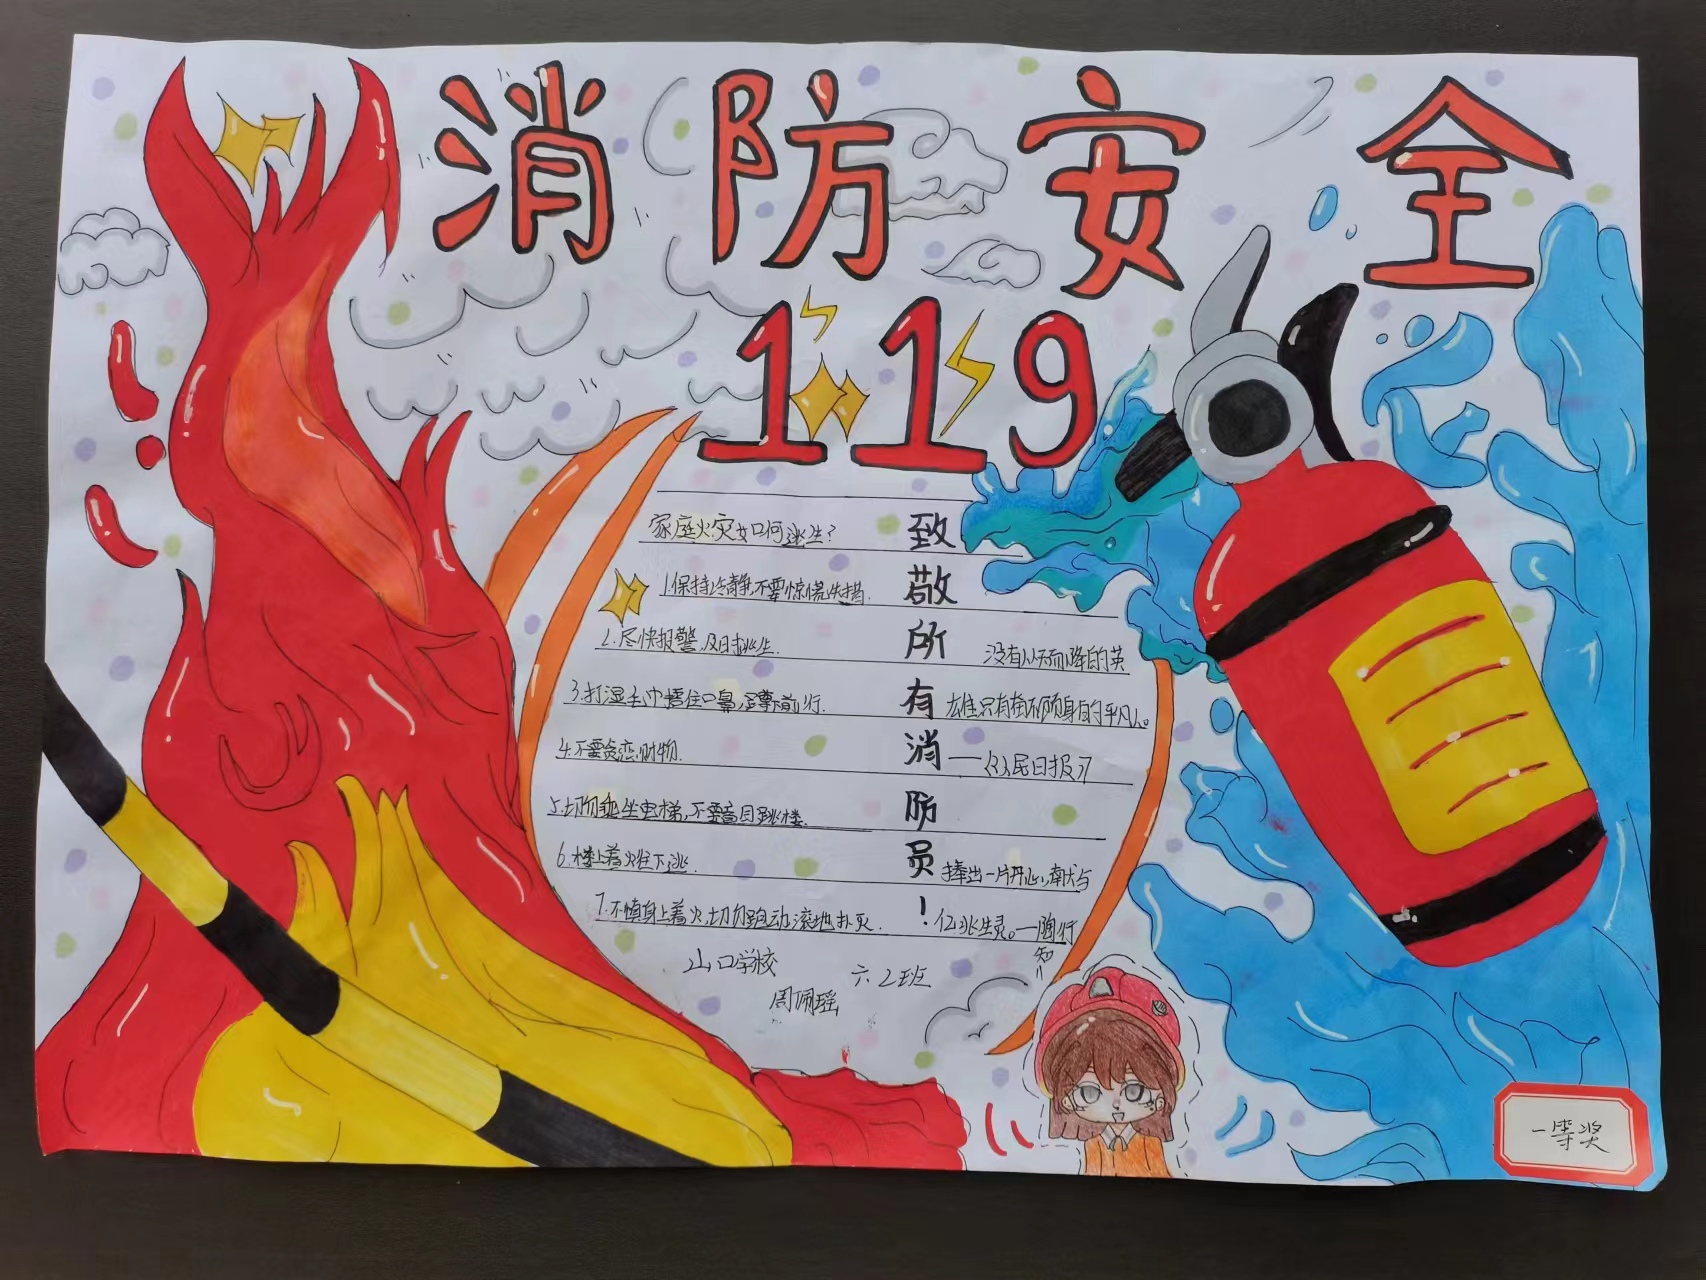 消防安全
119
家庭火灾如何逃生?
1.保持冷静,不要惊慌失措.
2.尽快报警,及时逃生.
3.打湿毛巾捂住口鼻,弯腰前行.
4.不要贪恋财物.
5.切勿乘坐电梯,不要盲目跳楼.
6.楼上着火往下逃.
7.不慎身上着火切勿跑动滚地扑灭.
致敬所有消防员!
没有从天而降的英
雄只有奋不顾身的平凡人。
——《人民日报》
捧出一片丹心,献与
亿兆生灵。—陶行
知
山口学校 六.2班
周佩瑶
一等奖